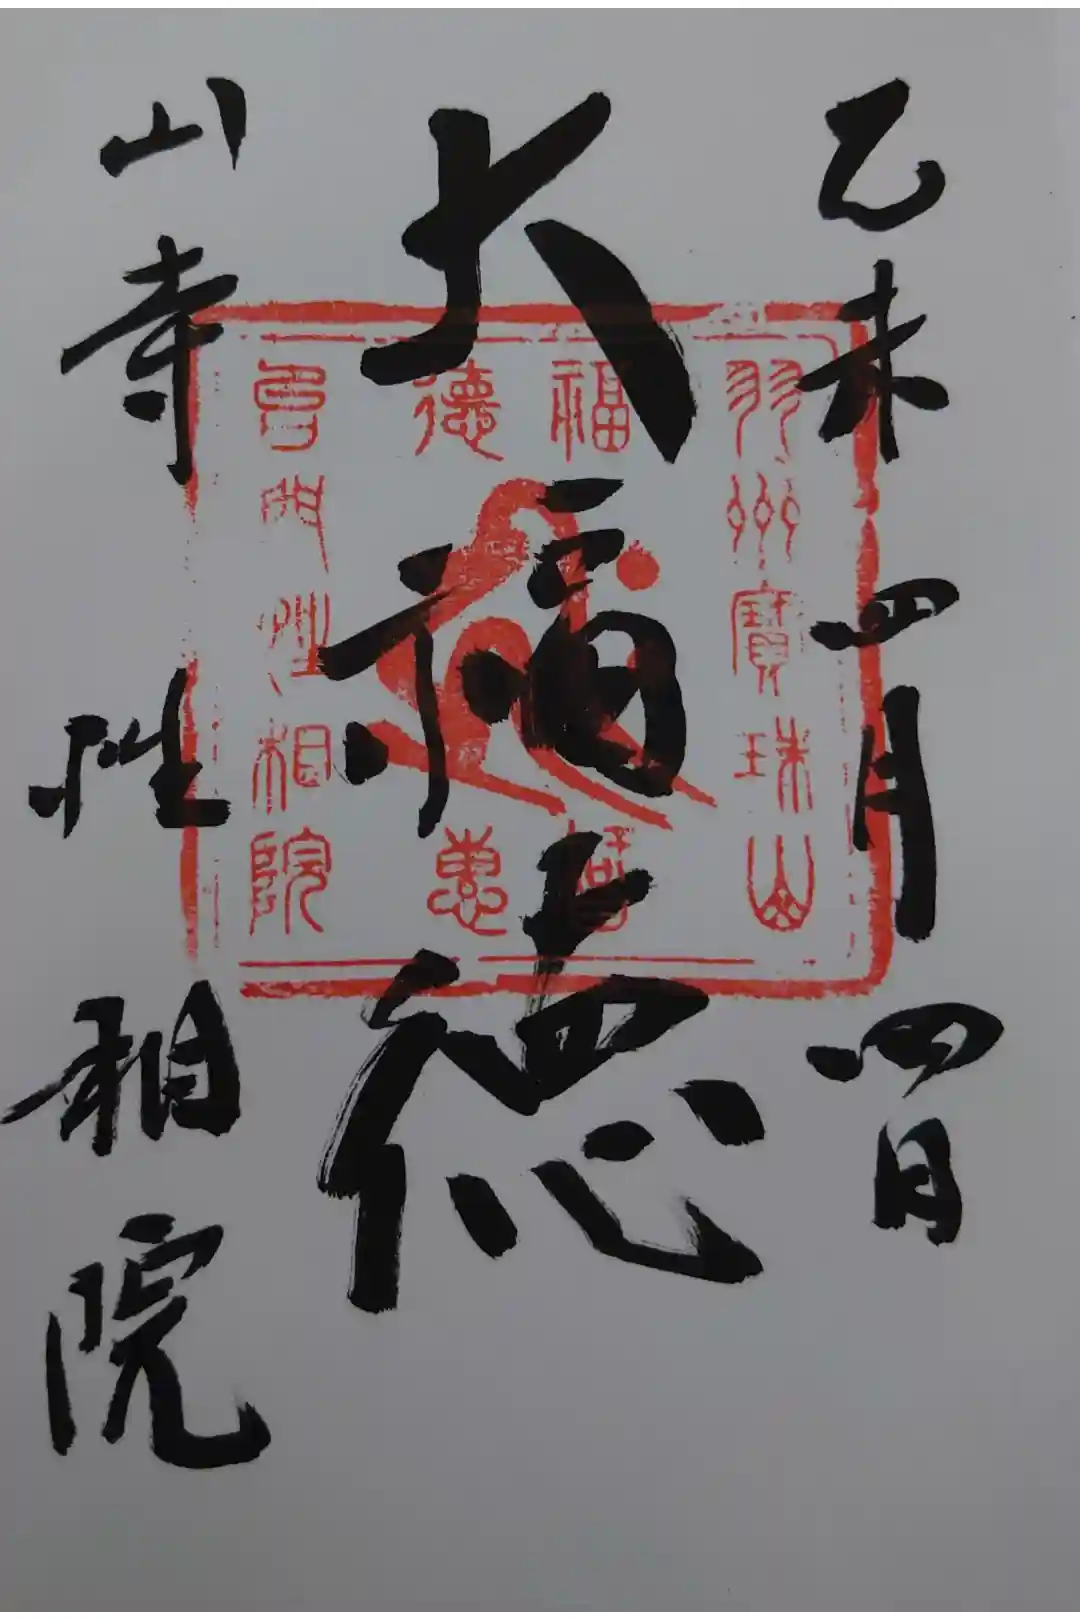 乙未四月四日
大福徳
山寺 性相院
羽州寳珠山
福徳
智恵
性相院